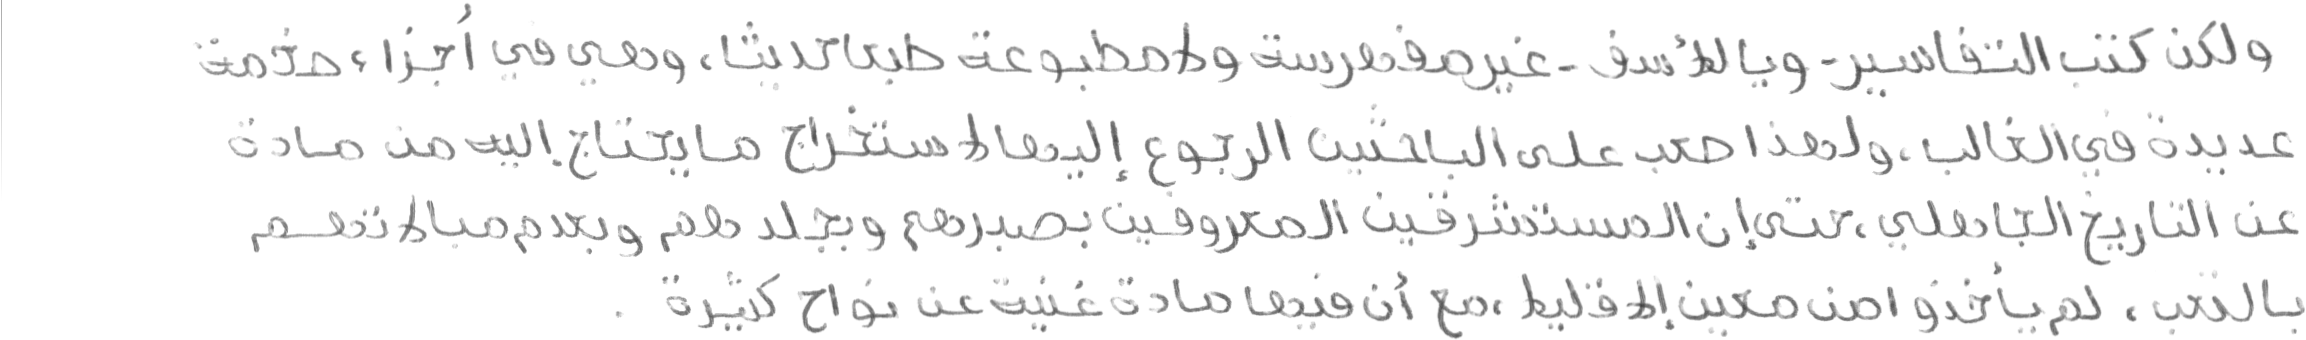 ولكن كتب التفاسير - ويا للأسف - غير مفهرسة ولا مطبوعة طبعا حديثا، وهي في أجزاء ضخمة
عديدة في الغالب، ولهذا صعب على الباحثين الرجوع إليها لاستخراج ما يحتاج إليه من مادة
عن التاريخ الجاهلي، حتى إن المستشرقين المعروفين بصبرهم وبجلدهم وبعدم مبالاتهم
بالتعب، لم يأخذوا من معين إلا قليلا، مع أن فيها مادة غنية عن نواح كثيرة .